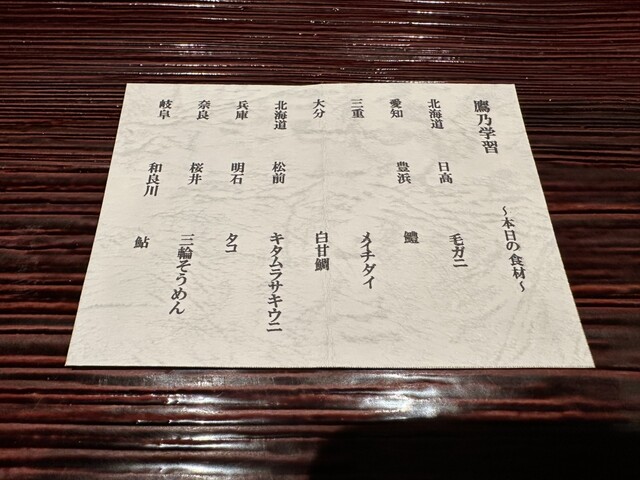 鷹乃学習 ～本日の食材～
北海道 日高 毛ガニ
愛知 豊浜 鱧
三重 メイチダイ
大分 白甘鯛
北海道 松前 キタムラサキウニ
兵庫 明石 タコ
奈良 桜井 三輪そうめん
岐阜 和良川 鮎